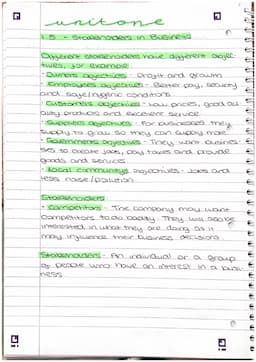 unit one
1.5 - Stakeholders in Business
Different stakeholders have different objec-
tives, for example:
· Owners objectives - Profit and growth
· Employees objectives - Better pay, security
and safe/hygienic conditions
· Customers objectives - Low prices, good qu-
ality products and excellent service
· Supplies objectives - For businesses they
supply to grow so they can supply more
· Governments objectives - They want busines-
ses to create jobs, pay taxes and provide
goods and services
· Local communitys objectives - Jobs and
less noise/pollution
Stakeholders
· Competitors - The company may want
competitors to do badly. They will also be
interested in what they are doing as it
may influence their business decisions
Stakeholders - An individual or a group
of people who have an interest in a busi-
ness